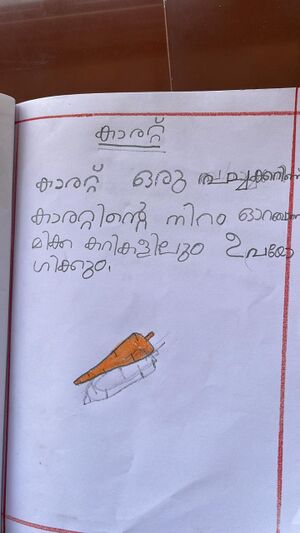 കാരറ്റ്
കാരറ്റ് ഒരു പച്ചക്കറിണ്
കാരറ്റിന്റെ നിറം ഓറഞ്ച
മിക്ക കറികളിലും ഉപയോ
ഗിക്കും.